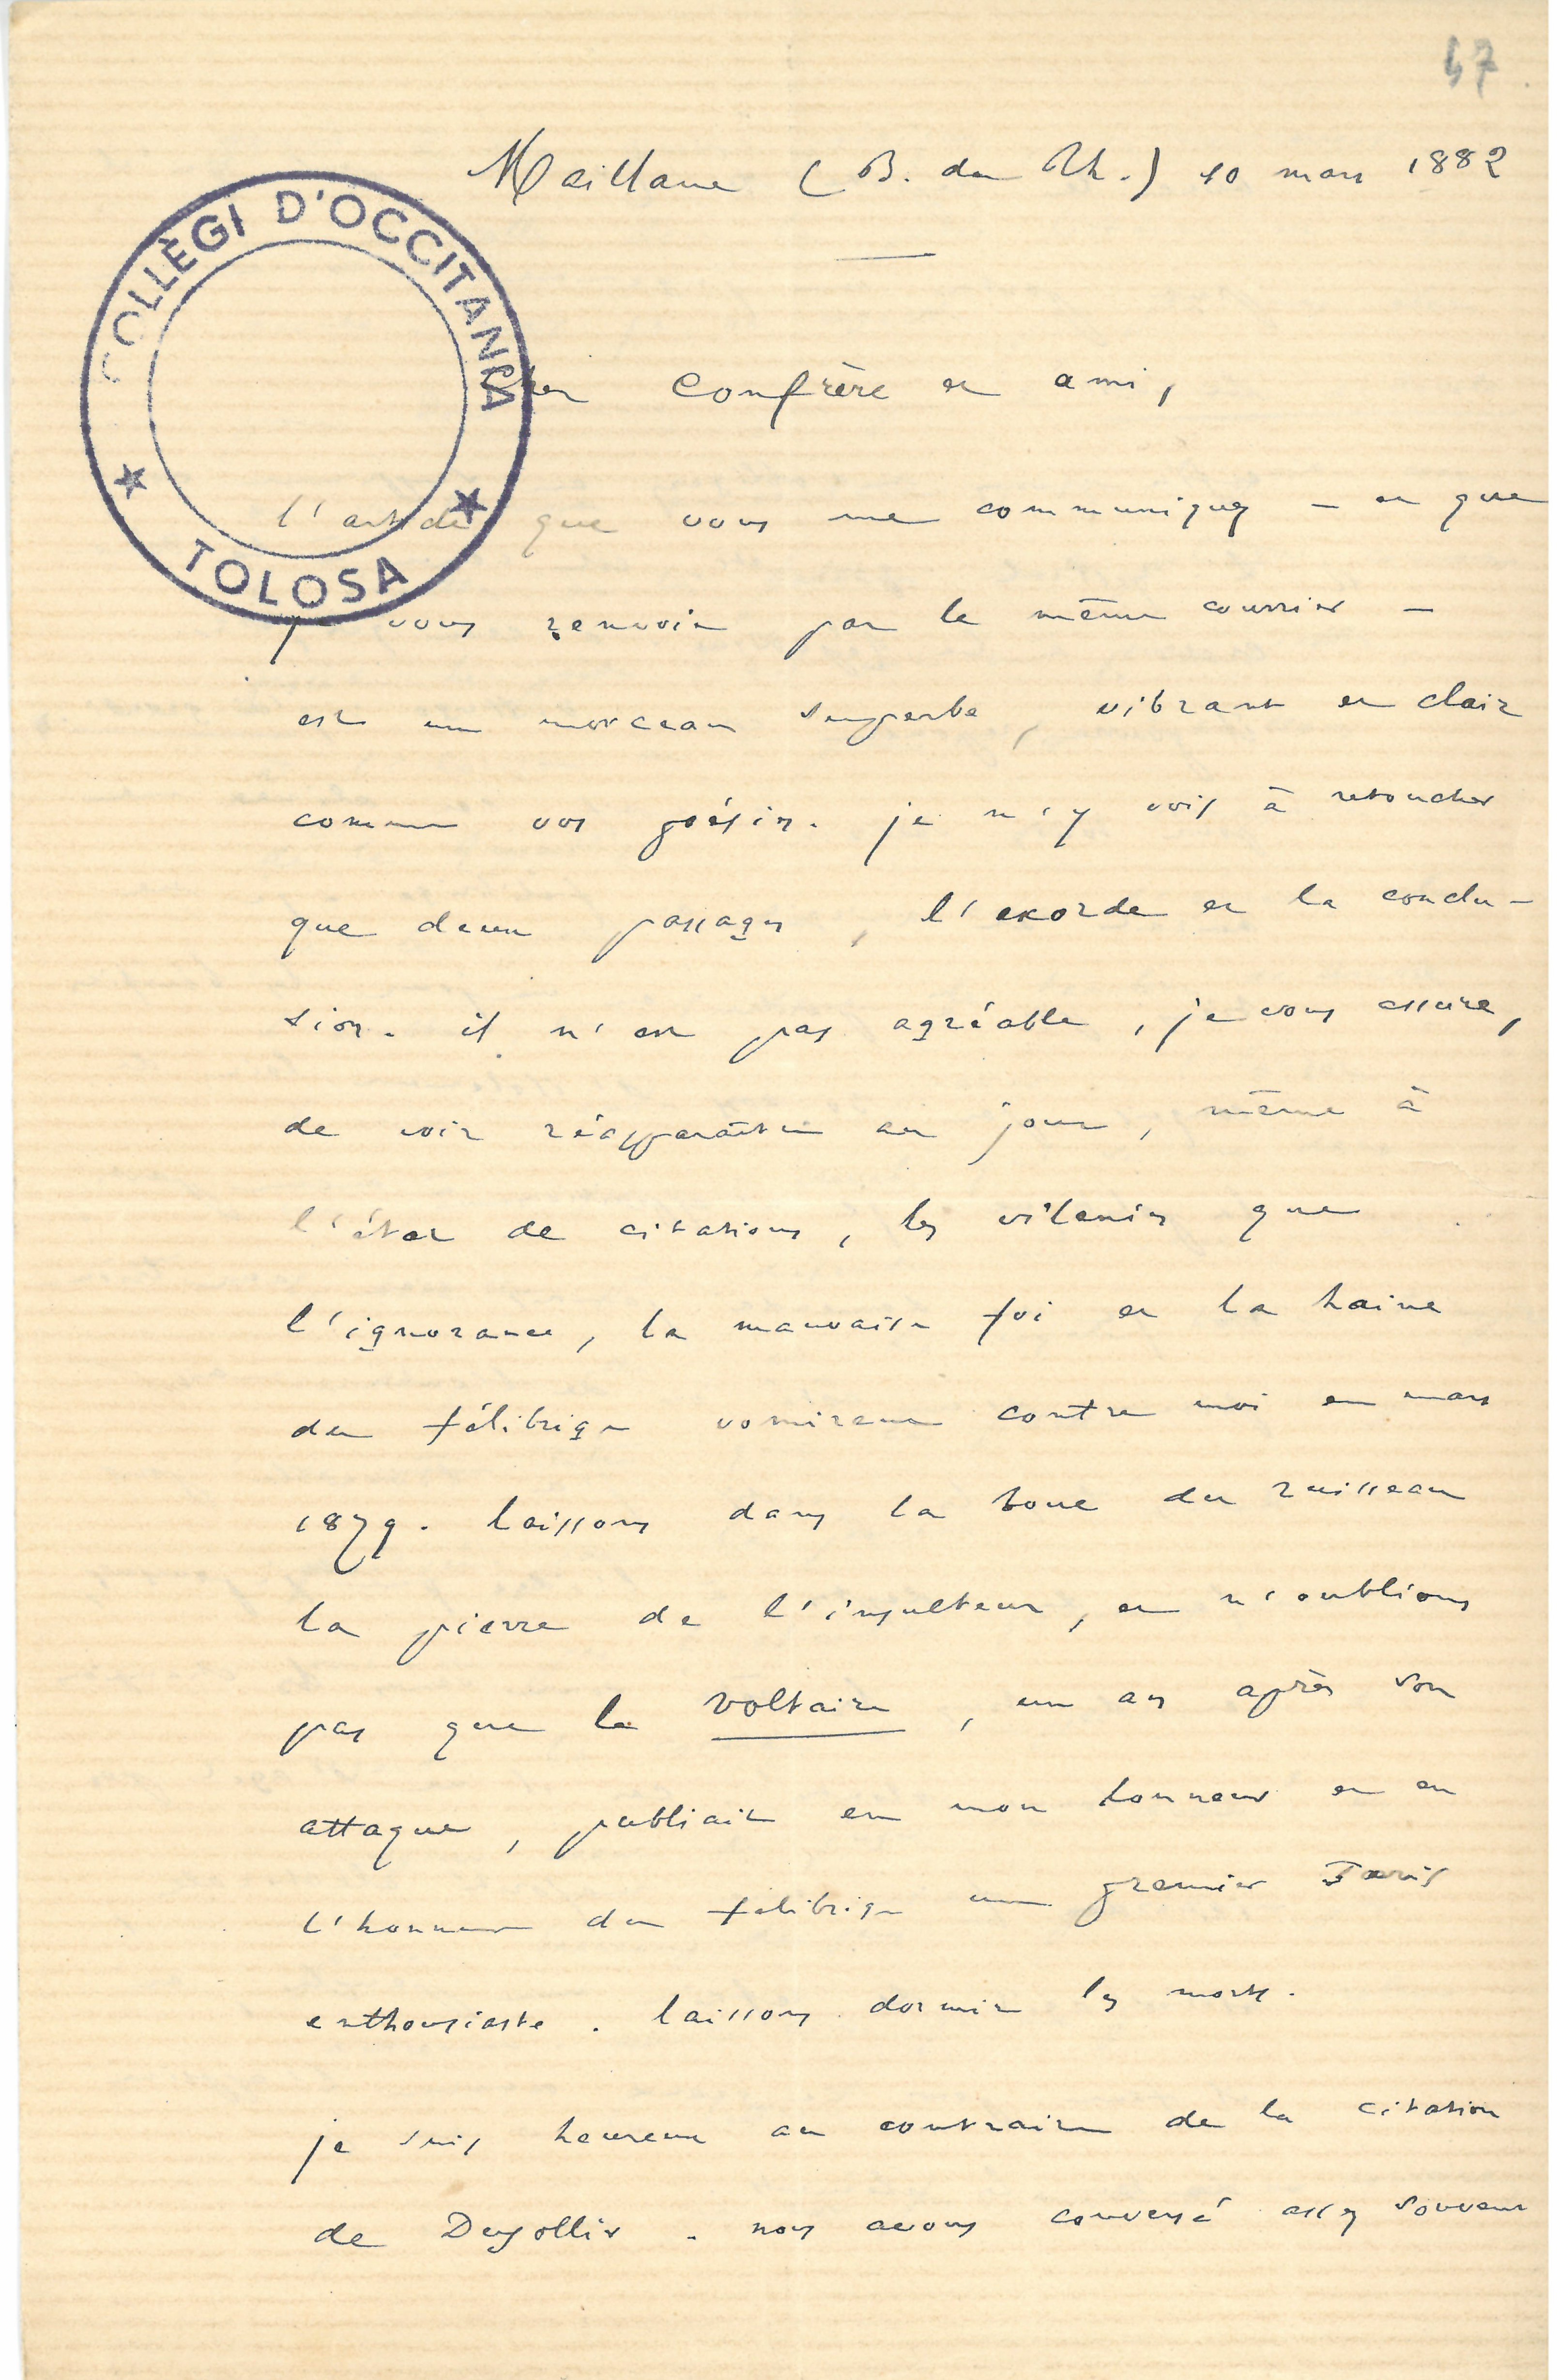 47
Maillane (B. du Rh.) 10 mars 1882
COLLÈGI D'OCCITANIA
TOLOSA
cher confrère et ami,
l'article que vous me communiquez — et que
je vous renvoie par le même courrier —
est un morceau superbe, vibrant et clair
comme vos poésies. je n'y vois à retoucher
que deux passages, l'exorde et la conclu-
sion. il n'est pas agréable, je vous assure,
de voir réapparaître au jour, même à
l'état de citations, les vilenies que
l'ignorance, la mauvaise foi et la haine
du félibrige vomirent contre moi en mars
1879. laissons dans la boue du ruisseau
la pierre de l'insulteur, et n'oublions
pas que le Voltaire, un an après son
attaque, publiait en mon honneur et en
l'honneur du félibrige un premier Paris
enthousiaste. laissons dormir les morts.
je suis heureux au contraire de la citation
de Desollis. nous avons conversé assez souvent